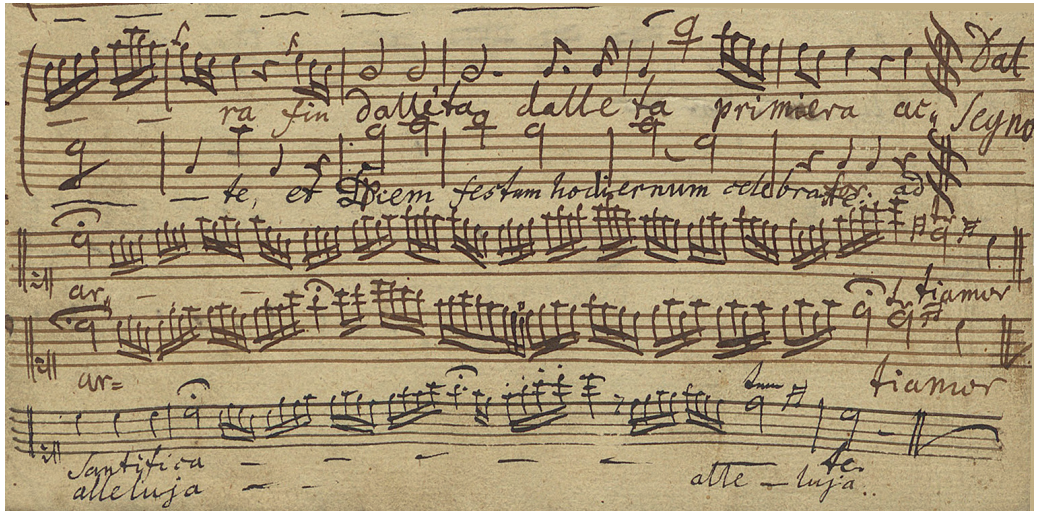 Dal
ra fin dall'età dalle ta primiera at,, Segno
te, et Diem festum hodiernum celebrate: ad
ar,, tiamor
ar= tiamor
Santifica te.
alleluja alle - luja..